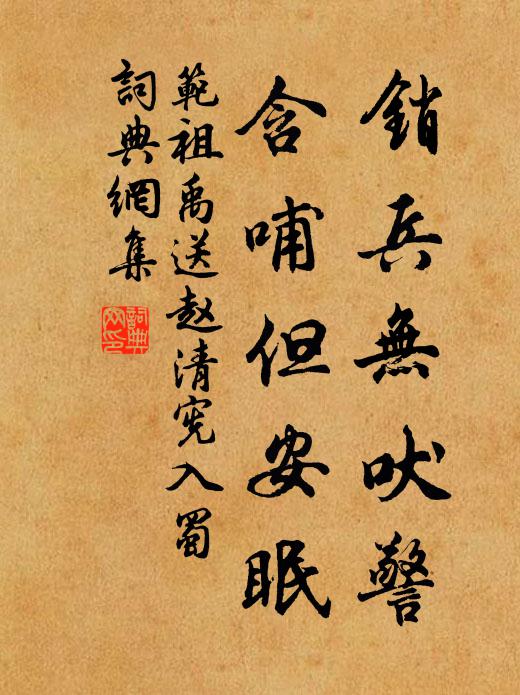 銷兵無吠警
含哺但安眠
範祖禹送趙清宪入蜀
詞典網集
詞典
网印